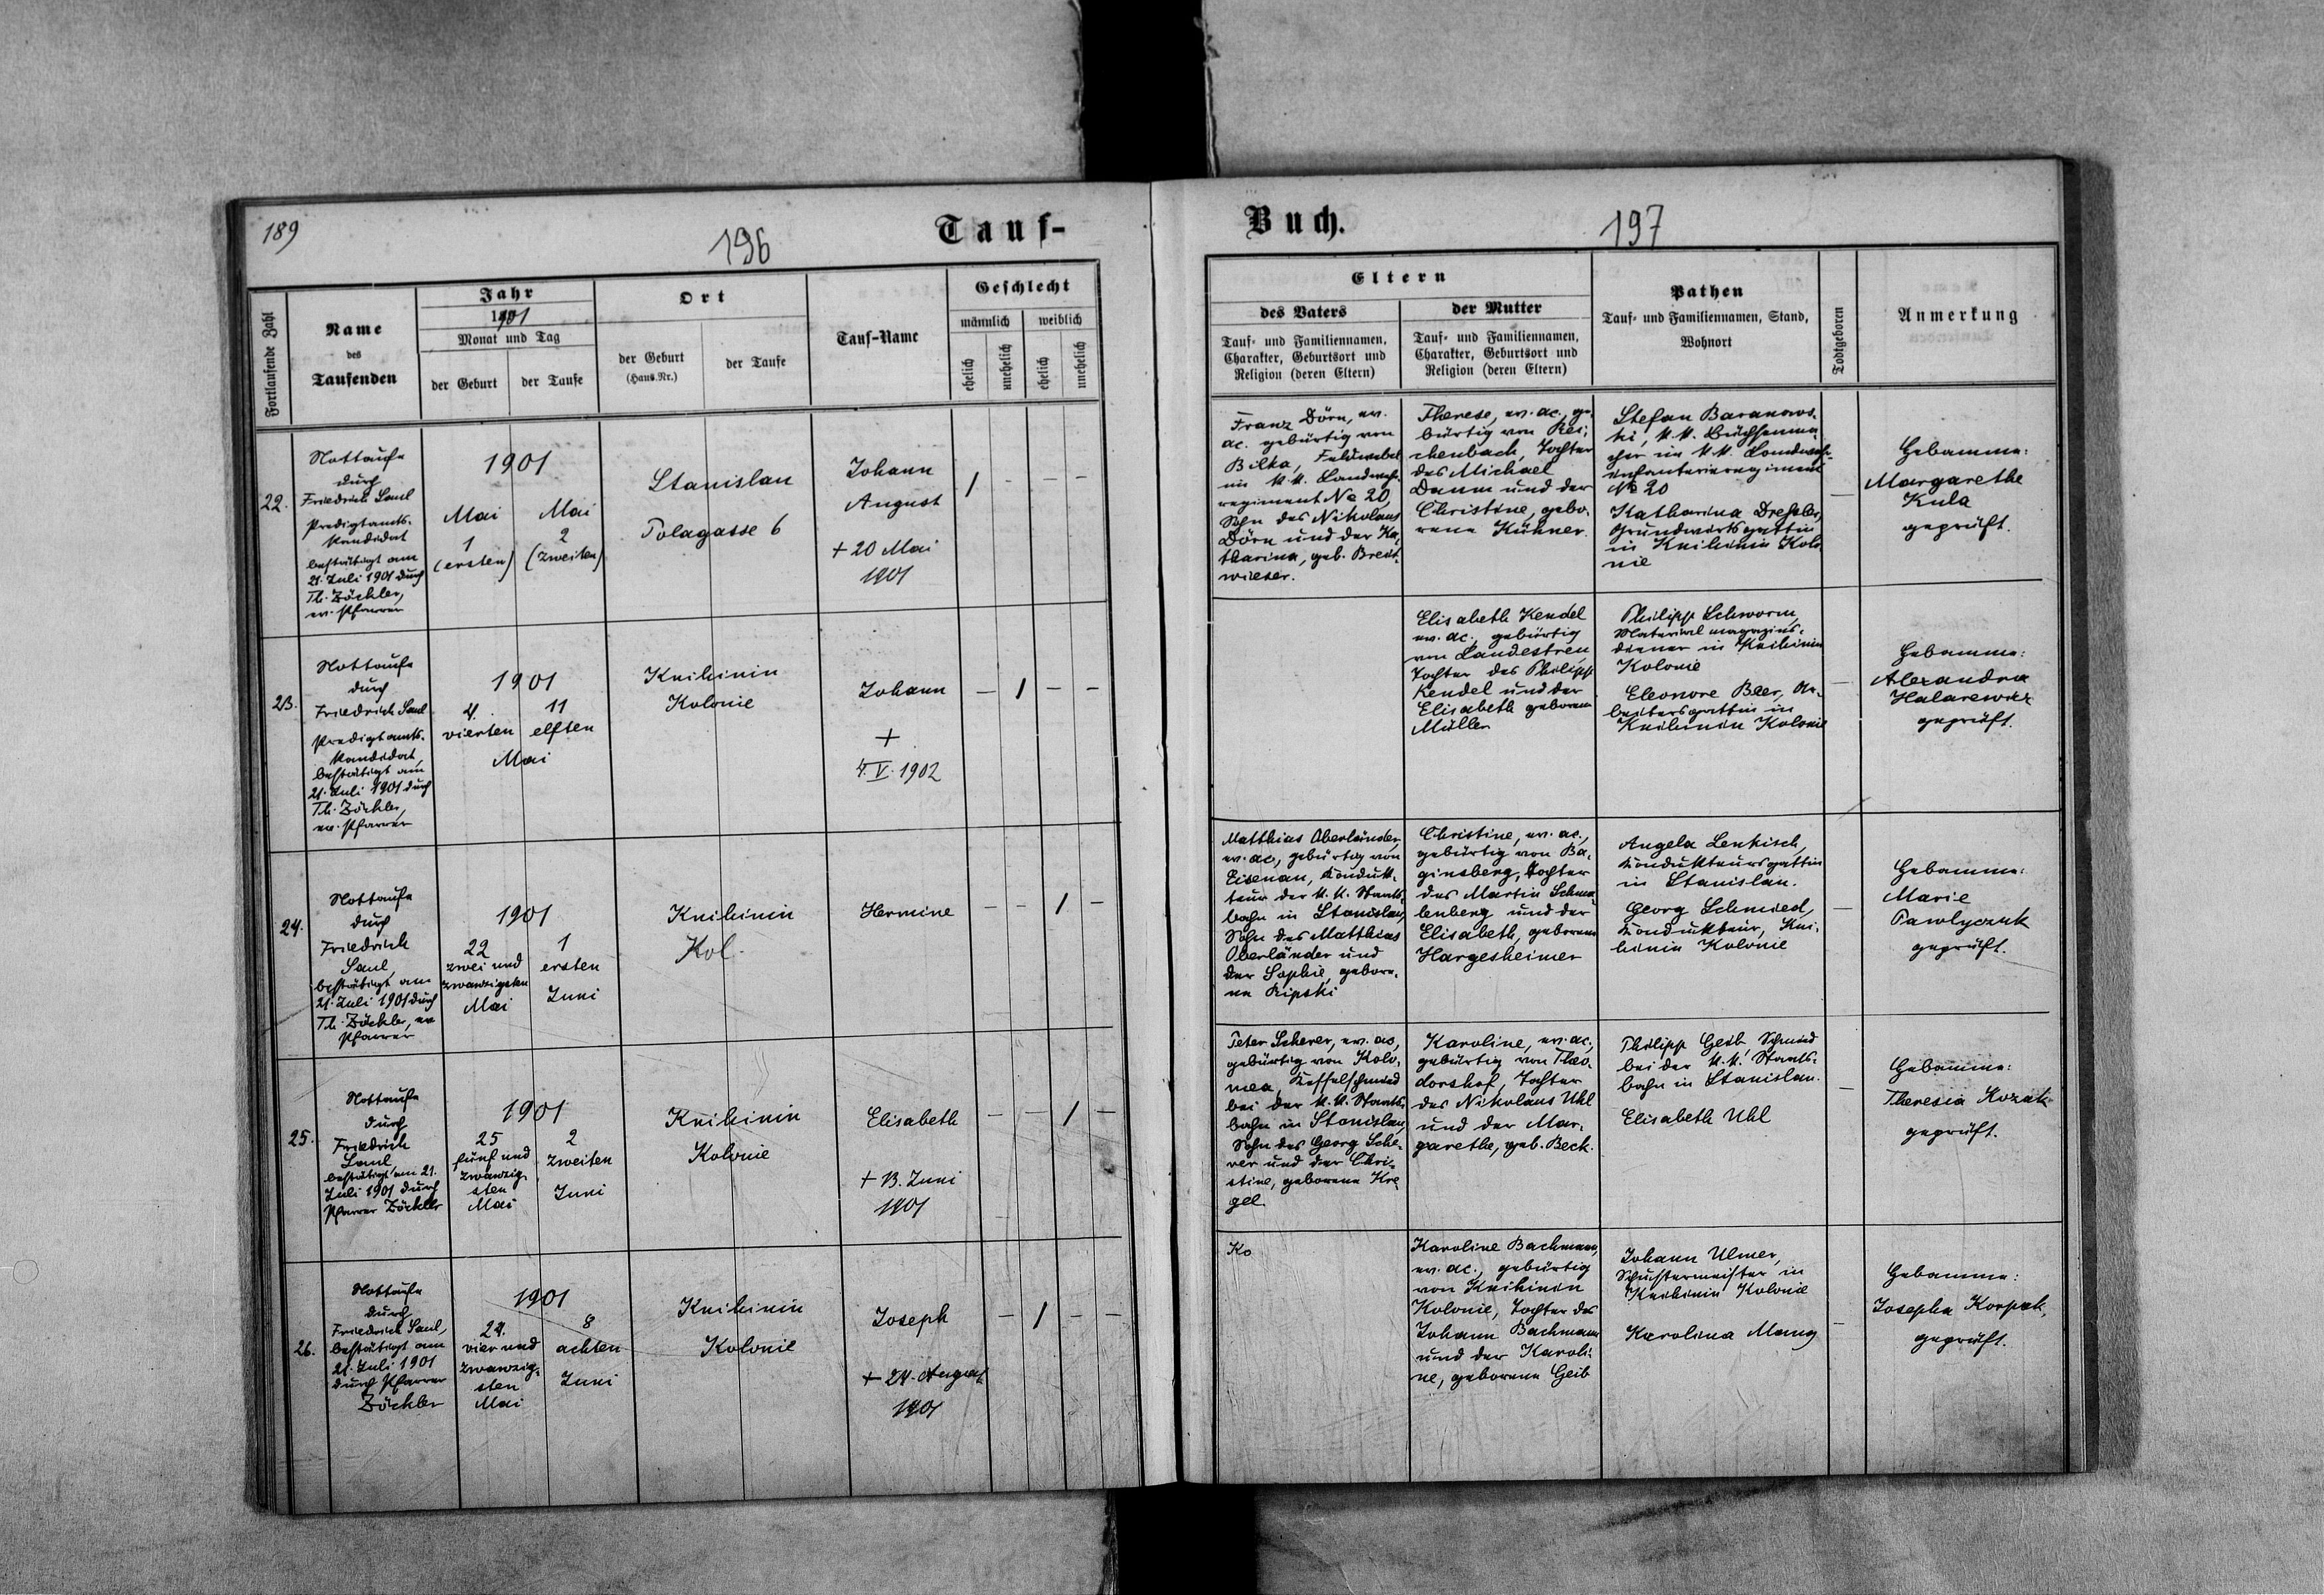 189
196
Tauf-
Fortlaufende Zahl
Name
des
Taufenden
Jahr
1901
Monat und Tag
der Geburt
der Taufe
Ort
der Geburt
(Haus-Nr.)
der Taufe
Tauf-Name
Geschlecht
männlich
weiblich
ehelich
unehelich
ehelich
unehelich
22.
Nottaufe
durch
Friedrich Saul
Predigtamts-
kandidat
bestätigt am
21. Juli 1901 durch
Th. Zöckler,
ev. Pfarrer
1901
Mai
1
(ersten)
Mai
2
(zweiten)
Stanislau
Polagasse 6
Johann
August
+ 20 Mai
1901
1 - - -
23.
Nottaufe
durch
Friedrich Saul
Predigtamts-
kandidat,
bestätigt am
21. Juli 1901 durch
Th. Zöckler,
ev. Pfarrer
1901
4.
vierten
11
elften
Mai
Knihinin
Kolonie
Johann
+
4. V. 1902
- 1 - -
24.
Nottaufe
durch
Friedrich
Saul,
bestätigt am
21. Juli 1901 durch
Th. Zöckler, ev
Pfarrer
1901
22
zwei und
zwanzigsten
Mai
1
ersten
Juni
Knihinin
Kol.
Hermine
- - 1 -
25.
Nottaufe
durch
Friedrich
Saul
bestätigt am 21.
Juli 1901 durch
Pfarrer Zöckler
1901
25
fünf und
zwanzig
sten
Mai
2
zweiten
Juni
Knihinin
Kolonie
Elisabeth
+ 13. Juni
1901
- - 1 -
26.
Nottaufe
durch
Friedrich Saul,
bestätigt am
21. Juli 1901
durch Pfarrer
Zöckler
1901
24.
vier und
zwanzig-
sten
Mai
8
achten
Juni
Knihinin
Kolonie
Joseph
+ 24. August
1901
- 1 - -
Buch.
197
Eltern
des Vaters
Tauf- und Familiennamen,
Charakter, Geburtsort und
Religion (deren Eltern)
der Mutter
Tauf- und Familiennamen,
Charakter, Geburtsort und
Religion (deren Eltern)
Pathen
Tauf- und Familiennamen, Stand,
Wohnort
Todtgeboren
Anmerkung
Franz Dörn, ev.
ac. gebürtig von
Bilka, Feldwebel
im k.k. Landwehr-
regiment No 20,
Sohn des Nikolaus
Dörn und der Ka-
tharina, geb. Breit-
wieser.
Therese, ev. ac., ge-
bürtig von Rei-
chenbach, Tochter
des Michael
Daum und der
Christine, gebo-
rene Kühner.
Stefan Baranows-
ki, k.k. Büchsenma-
cher im k.k. Landwehr-
infanterieregiment
No 20
Katharina Dreßler,
Grundwirtsgattin
in Knihinin Kolo
nie
-
Hebamme:
Margarethe
Kula
geprüft.
Elisabeth Kendel
ev. ac., gebürtig
von Landestreu,
Tochter des Philipp
Kendel und der
Elisabeth geborene
Müller
Philipp Schworm,
Materialmagazins-
diener in Knihinin
Kolonie
Eleonore Beer, Ar-
beitersgattin in
Knihinin Kolonie
-
Hebamme:
Alexandra
Halarewicz
geprüft.
Matthias Oberländer,
ev. ac., gebürtig von
Eisenau, Konduk-
teur der k.k. Staats-
bahn in Stanislau,
Sohn des Matthias
Oberländer und
der Sophie, gebore-
ne Ripski
Christine, ev. ac.,
gebürtig von Ba-
ginsberg, Tochter
des Martin Schma-
lenberg und der
Elisabeth, geborene
Hargesheimer
Angela Lenkisch,
Kondukteursgattin
in Stanislau.
Georg Schmied,
Kondukteur, Kni-
hinin Kolonie
-
Hebamme:
Marie
Pawlyczuk
geprüft.
Peter Scherer, ev. ac,
gebürtig von Kolo-
mea, Kesselschmied
bei der k.k. Staats-
bahn in Stanislau,
Sohn des Georg Sche-
rer und der Chri-
stine, geborene Kre-
gel.
Karoline, ev. ac.,
gebürtig von Theo-
dorshof, Tochter
des Nikolaus Uhl
und der Mar-
garethe, geb. Beck.
Philipp Geib, Schmied
bei der k.k. Staats-
bahn in Stanislau.
Elisabeth Uhl
-
Hebamme:
Theresia Kozak
geprüft.
Ko
Karoline Bachmann,
ev. ac., gebürtig
von Knihinin
Kolonie, Tochter des
Johann Bachmann
und der Karoli-
ne, geborene Geib
Johann Ulmer,
Schustermeister in
Knihinin Kolonie
Karolina Mang
-
Hebamme:
Josepha Korpak,
geprüft.